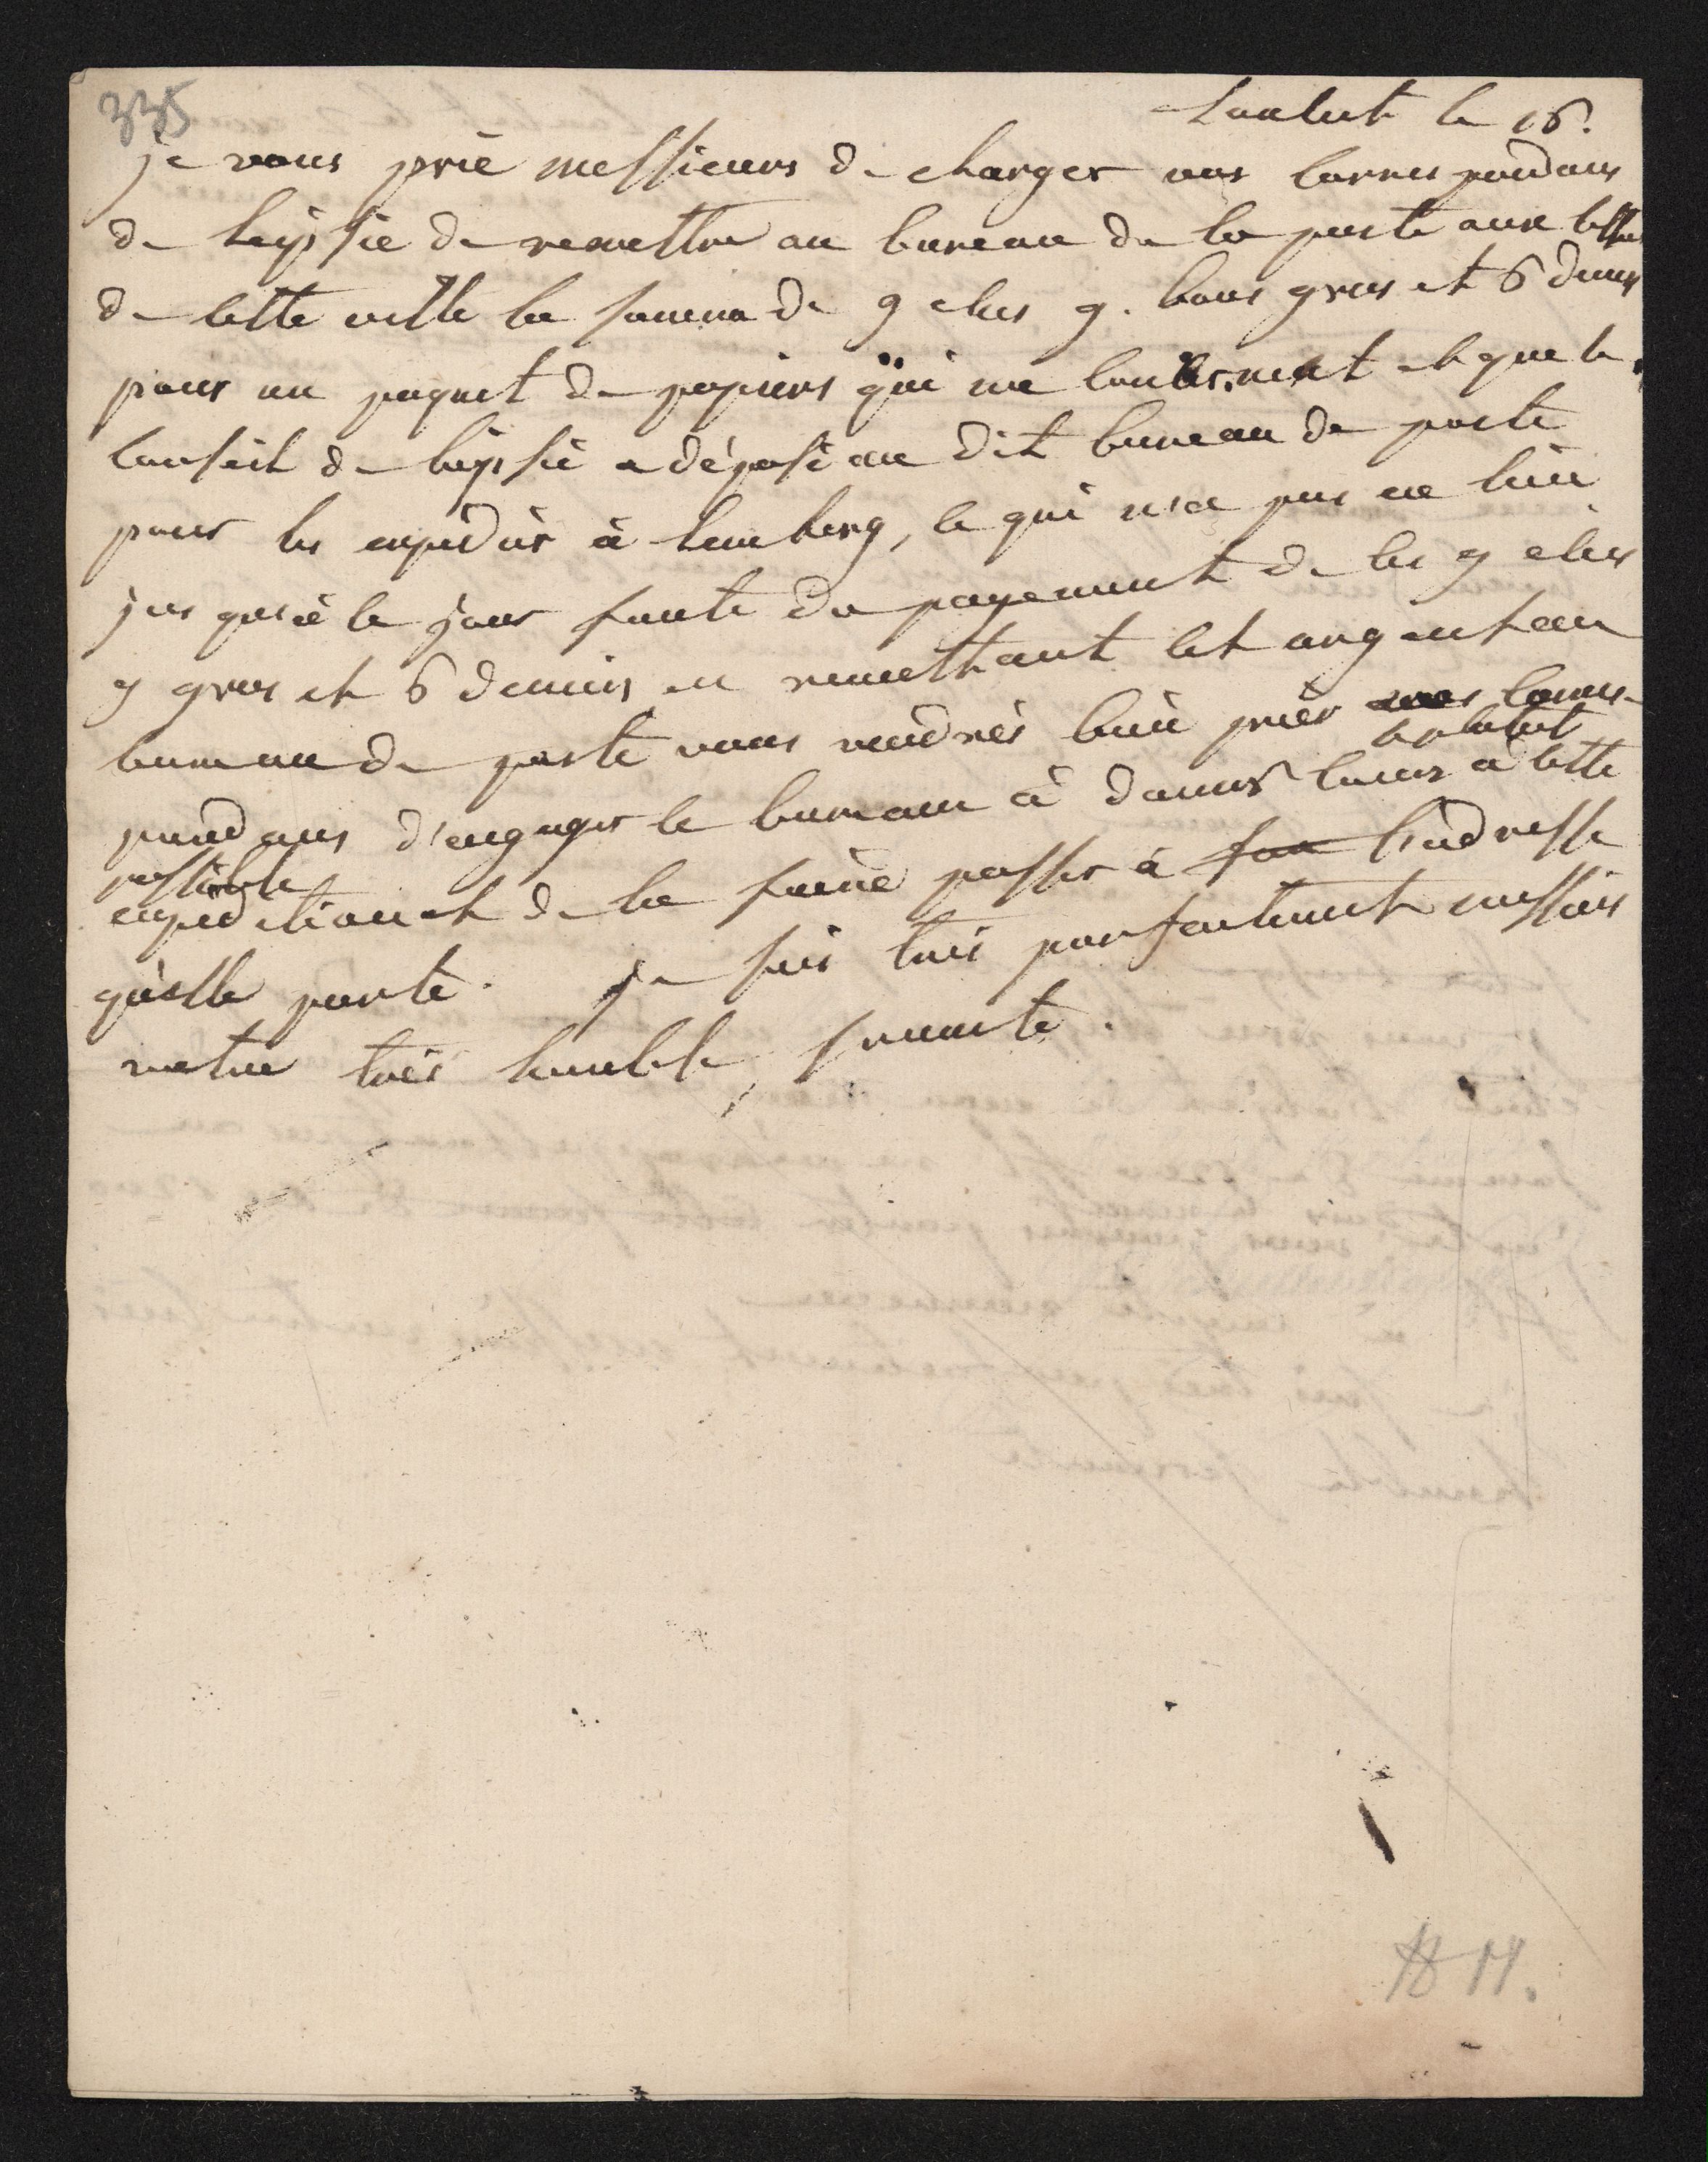 335
Lanhut le 16.
je vous prie messieurs de charger vos corres pondans
de leipsie de remettre au bureau de la poste aux lettres
de cette ville la somme de 9 ecus 9. bons gros et 6 deniers
pour un paquet de papiers qui me concernent et que le
conseil de leipsie a déposé au dit bureau de poste
pour les expedier à lemberg, ce qui n'a pas eu lieu
jus qu'à ce jour faute du payement de les 9 ecus
9 gros et 6 deniers en remettant cet argent au
bureau de poste vous voudrés bien prier vos corres-
pondans d'engager le bureau à donner cours à cette
le plutot
possible
expedition et de la faire passer à l'adresse
qu'elle porte. je suis très parfaitement messieurs
votre très humble servante.